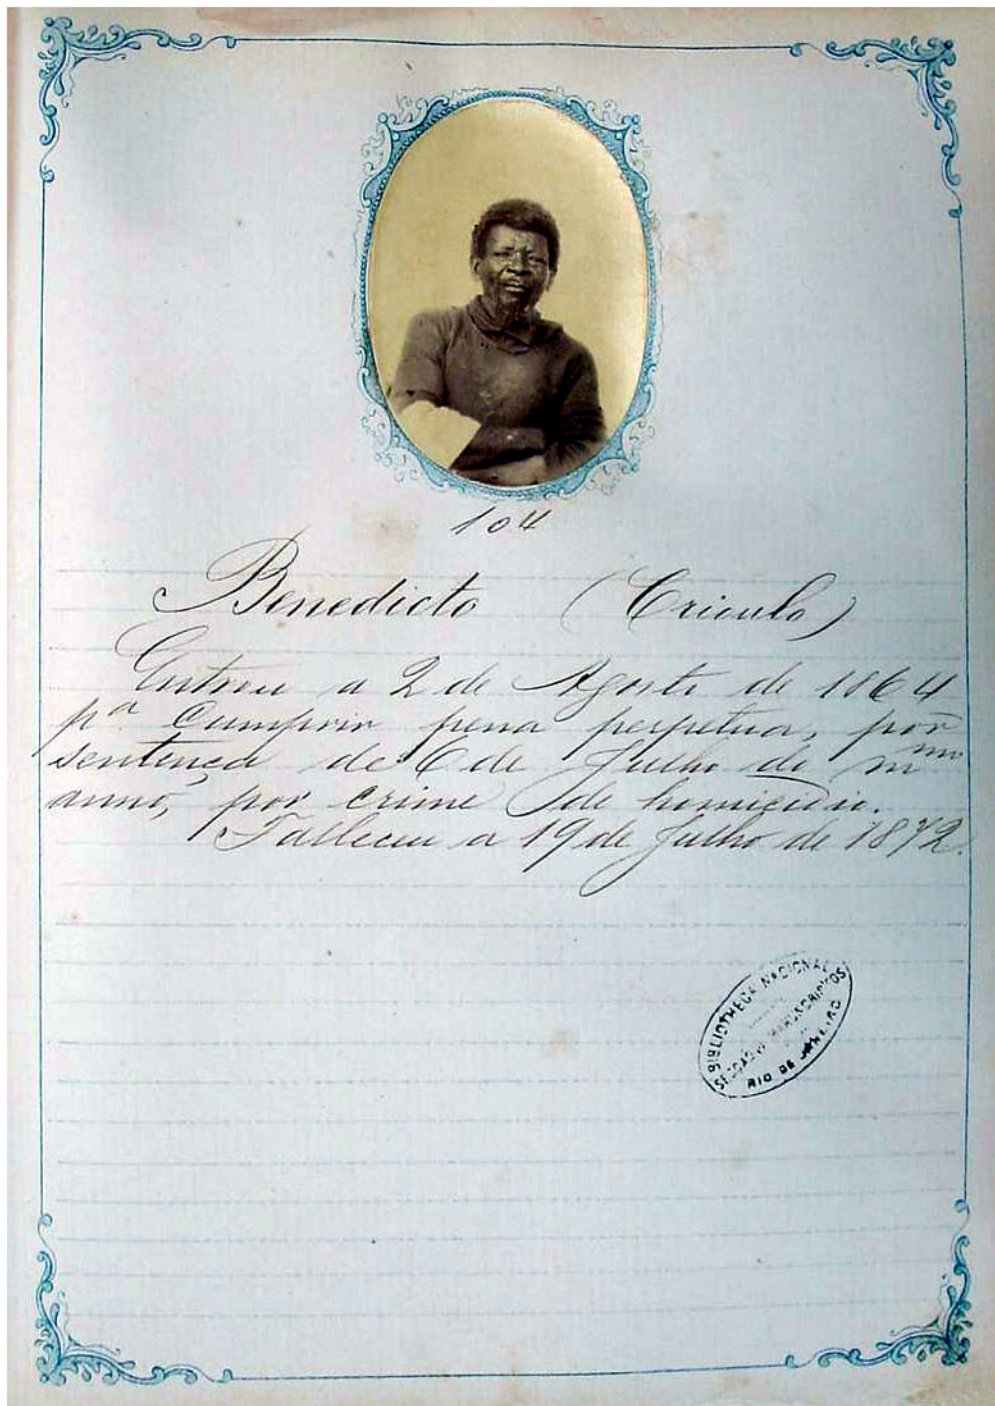 104
Benedicto (Crioulo)
Entrou a 2 de Agosto de 1864
pª Cumprir pena perpetua, por
sentença de 6 de Julho do mmo
anno, por crime de homicidio.
Falleceu a 19 de Julho de 1872.
BIBLIOTHECA NACIONAL
SECÇÃO DE MANUSCRIPTOS
RIO DE JANEIRO